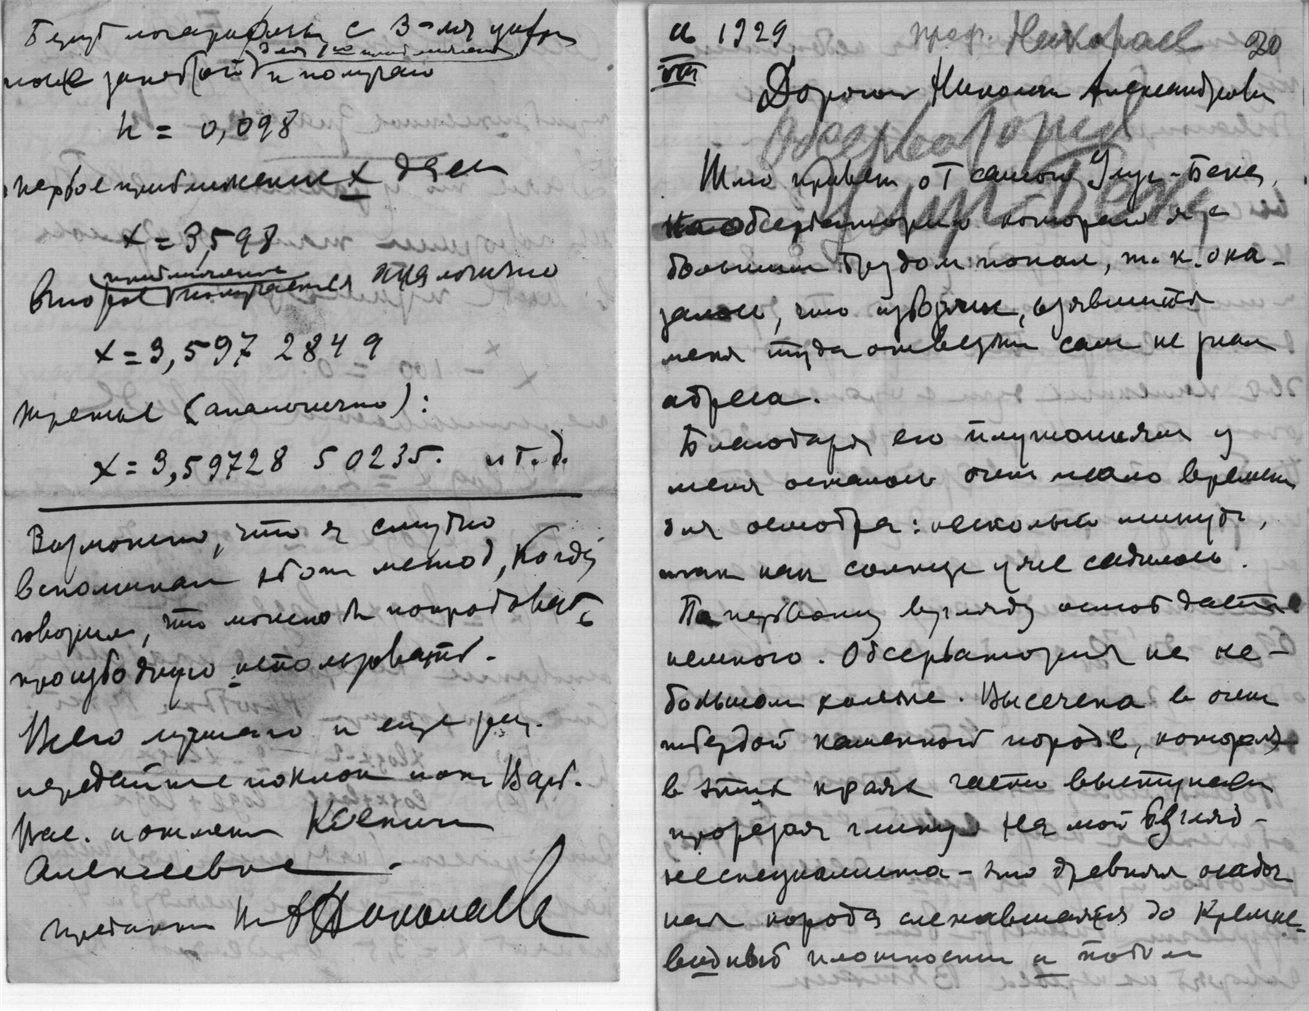 Берут логарифмы с 3-мя цифр
для 1го приближения
и получаю
h = 0,098
первое приближение x даст
x = 3,598
приближение
второе получается аналогично
x = 3,597 2849
третье (аналогично):
x = 3,59728 50235. и т.д.
Возможно, что я смутно
вспоминаю этот метод, когда
говорил, что можно попробовать
производную использовать.
Всего лучшего и еще раз
передайте поклон
Вас. и Ксении
Алексеевне
преданный Вам
1929 проф. Николаев 20
VIII
Дорогой Николай Александрович
Обсерватория
Улуг-Бека
Шлю привет от самого Улуг-Бека,
на обсерваторию которого я с
большим трудом попал, т.к. ока-
залось, что извозчик, взявшийся
меня туда отвезти сам не знал
адреса.
Благодаря его плутаниям у
меня осталось очень мало времени
для осмотра: несколько минут,
так как солнце уже садилось.
По первому взгляду осмотр дает
немного. Обсерватория на не-
большом холме. Высечена в очень
твердой каменной породе, которая
в этих краях часто выступает
прорезая глину на мой взгляд-
неспециалиста - это древняя осадоч
ная порода слежавшаяся до кремне-
видный плотности и потом